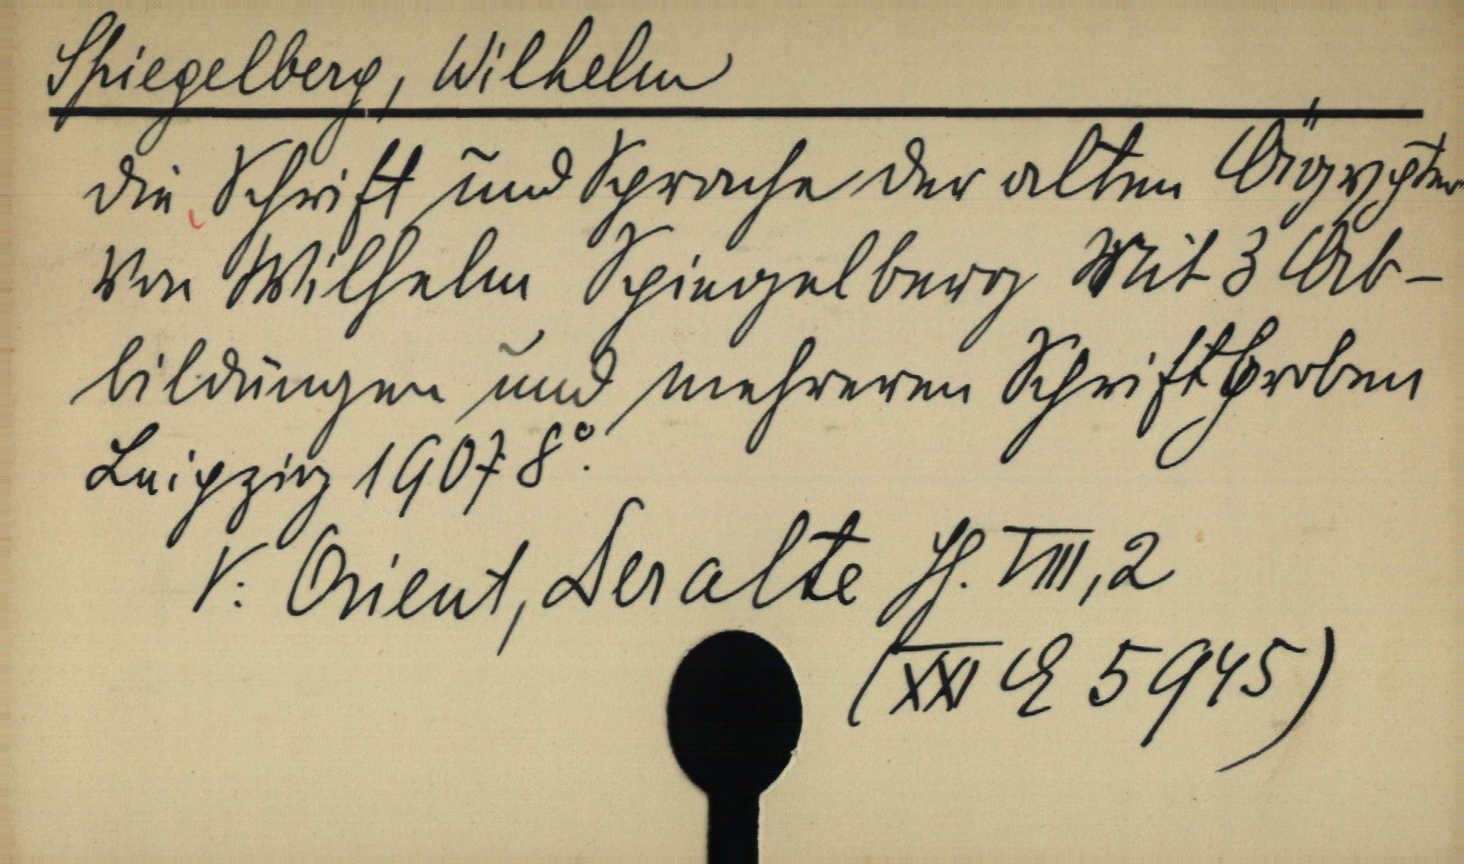 Spiegelberg, Wilhelm
Die Schrift und Sprache der alten Ägypter
Von Wilhelm Spiegelberg Mit 3 Ab-
bildungen und mehreren Schriftproben
Leipzig 1907 8°.
V: Orient, Der alte Jg. VIII, 2
(XXI C 5945)